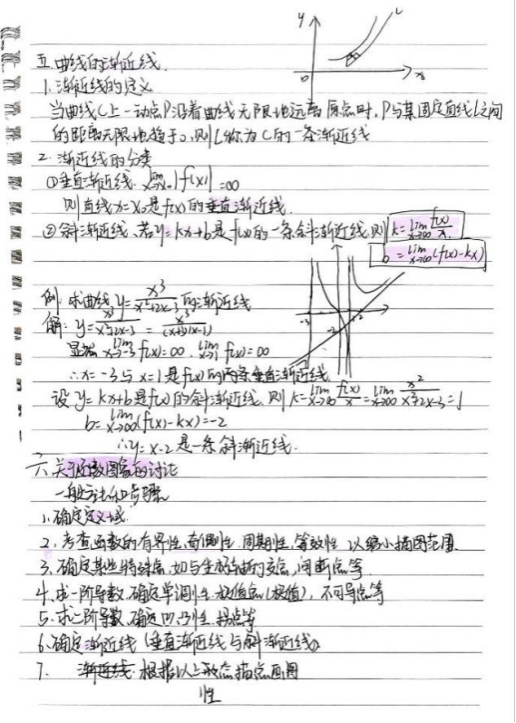 y
L
o
x
五.曲线的渐近线.
1.渐近线的定义
当曲线C上一动点P沿着曲线无限地远离原点时,P与某固定直线L之间
的距离无限地趋于0,则L称为C的一条渐近线
2.渐近线的分类
①垂直渐近线. lim x→x₀ |f(x)| = ∞
则直线x=x₀是f(x)的垂直渐近线.
②斜渐近线.若y=kx+b是f(x)的一条斜渐近线,则 k=lim x→∞ f(x)/x
b=lim x→∞ (f(x)-kx)
例.求曲线y=x³/(x²+2x-3)的渐近线
解:y=x³/(x²+2x-3)=x³/(x+3)(x-1)
显然 lim x→-3 f(x)=∞. lim x→1 f(x)=∞
∴x=-3与x=1是f(x)的两条垂直渐近线
设y=kx+b是f(x)的斜渐近线,则k=lim x→∞ f(x)/x=lim x→∞ x²/(x²+2x-3)=1
b=lim x→∞ (f(x)-kx)=-2
∴y=x-2是一条斜渐近线.
六.关于函数图象的讨论
一般方法和步骤
1.确定定义域.
2.考查函数的有界性,奇偶性,周期性,等效性 以缩小描图范围
3.确定某些特殊点,如与坐标轴的交点,间断点等
4.求一阶导数,确定单调性,极值点(极值),不可导点等
5.求二阶导数,确定凹凸性,拐点等
6.确定渐近线(垂直渐近线与斜渐近线)
7. 渐近线 根据以上形态描点画图
性